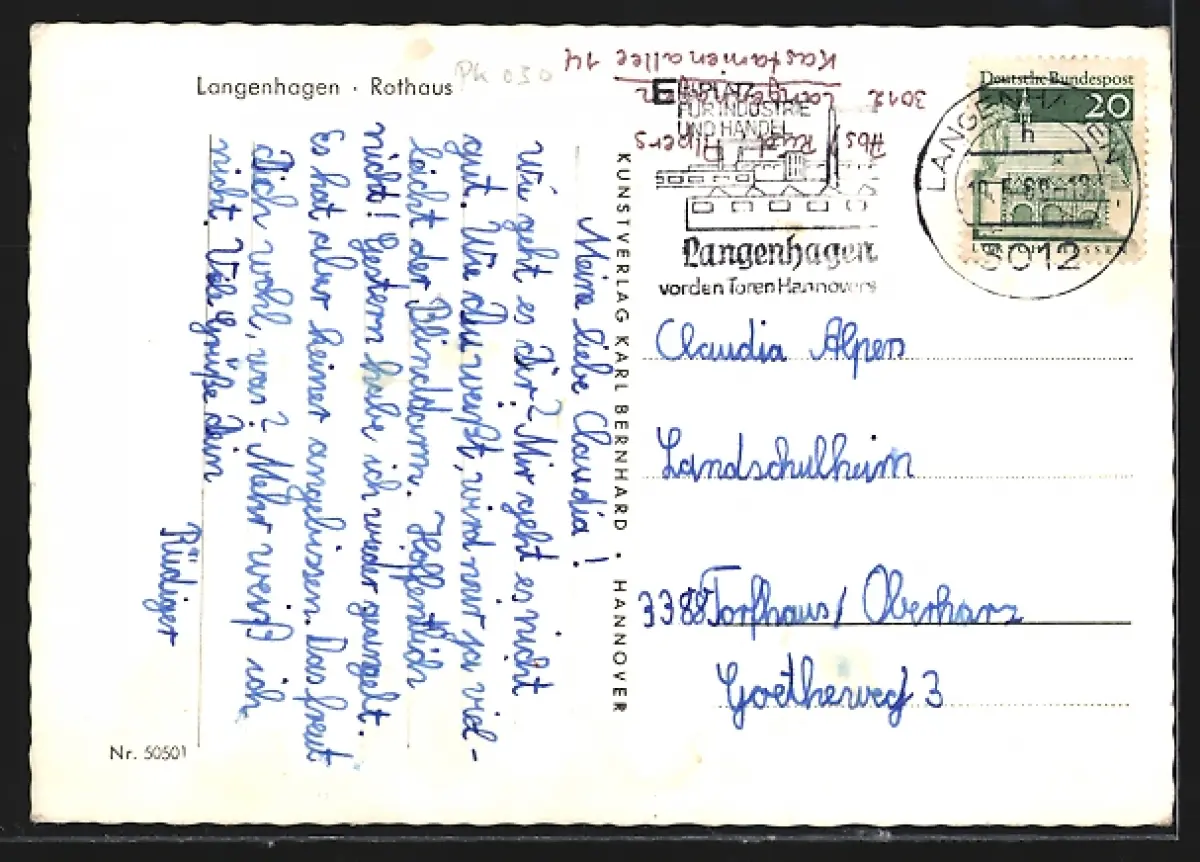 Langenhagen · Rathaus
Pk 030
Meine liebe Claudia!
Wie geht es Dir? Mir geht es nicht
gut. Wie Du weißt, wird mir ja viel-
leicht der Blinddarm. Hoffentlich
nicht! Gestern habe ich wieder geangelt.
Es hat aber keiner angebissen. Das freut
Dich wohl, was? Mehr weiß ich
nicht. Viele Grüße Dein
Rüdiger
Nr. 50501
KUNSTVERLAG KARL BERNHARD · HANNOVER
Abs Rüd Alpers
3012 Langenhagen
Kastanienallee 14
PLATZ
FÜR INDUSTRIE
UND HANDEL
Langenhagen
vor den Toren Hannovers
LANGENHAGEN
h
3012
Deutsche Bundespost
20
Claudia Alpers
Landschulheim
3388 Torfhaus/Oberharz
Goetheweg 3